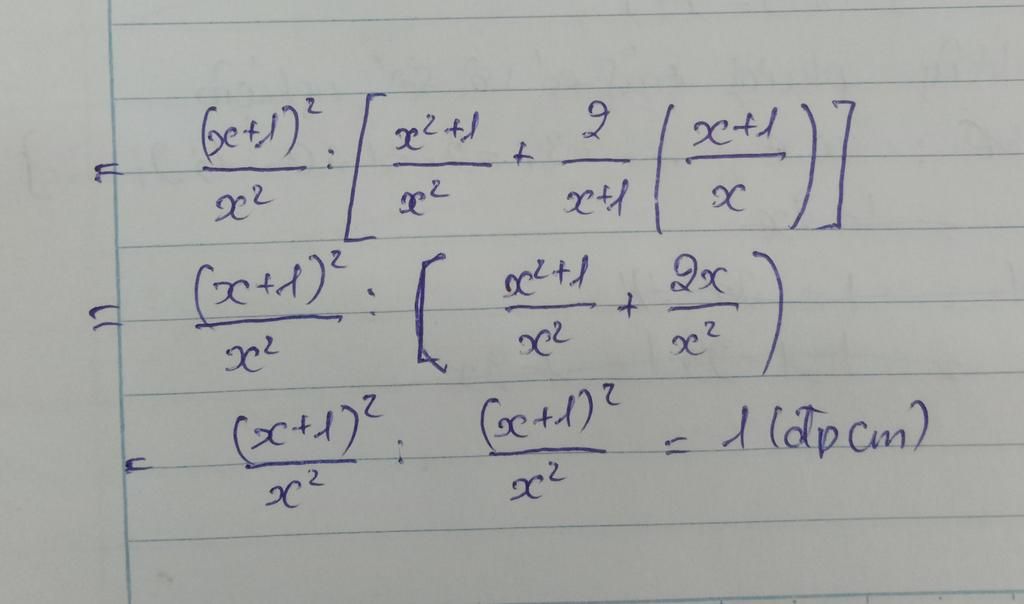 = \frac{(x+1)^2}{x^2} : \left[ \frac{x^2+1}{x^2} + \frac{2}{x+1} \left( \frac{x+1}{x} \right) \right]
= \frac{(x+1)^2}{x^2} : \left( \frac{x^2+1}{x^2} + \frac{2x}{x^2} \right)
= \frac{(x+1)^2}{x^2} : \frac{(x+1)^2}{x^2} = 1 (đpcm)